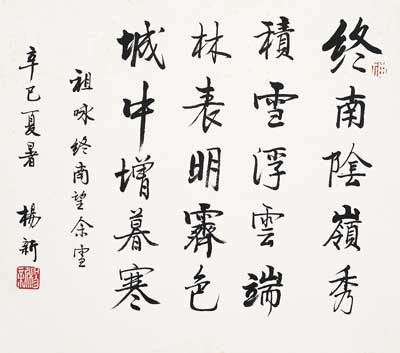 終南陰嶺秀
積雪浮雲端
林表明霽色
城中增暮寒
祖咏終南望余雪
辛巳夏暑
楊新